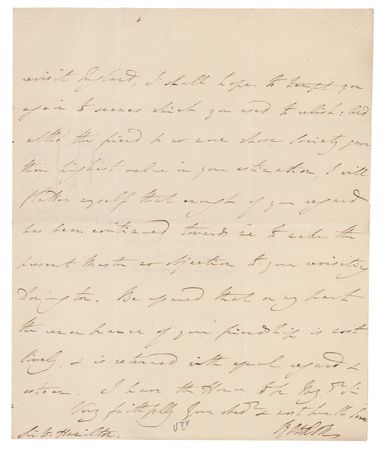 revisit England, I shall hope to tempt you
again to scenes which you used to relish: and
altho' the friend is no more whose Society gave
them highest value in your estimation, I will
flatter myself that enough of your regard
has been continued towards me to make the
present Master no objection to your revisiting
Dorington. Be assured that on my part
the remembrance of your friendship is most
lively, & is returned with equal regard &
esteem. I have the Honor to be My Dr Sir
Very faithfully Your Obedt & most humble Servt
Sir W. Hamilton.